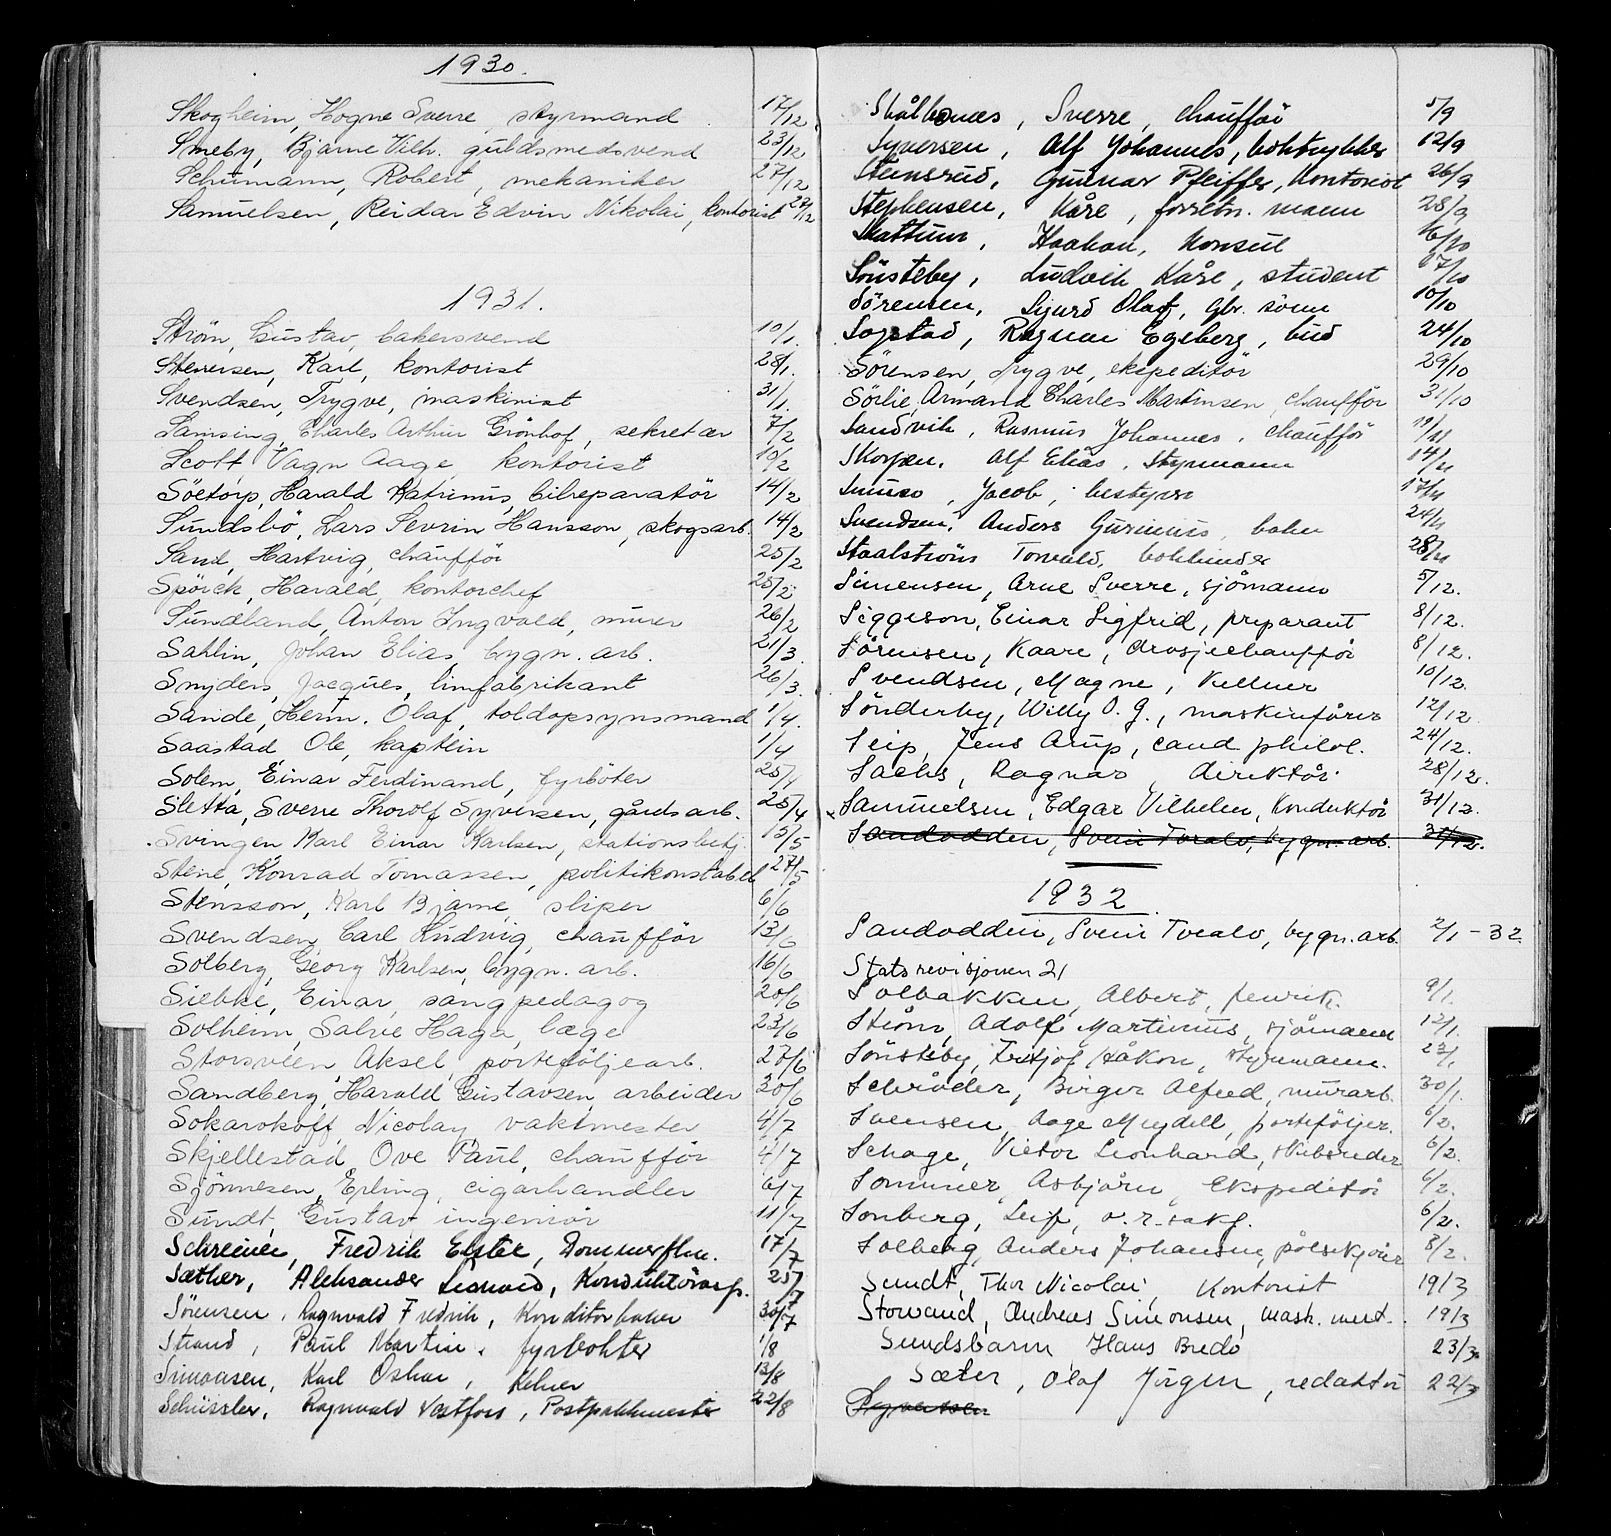 1930.
Skogheim, Hogne Sverre, styrmand 17/12
Smeby, Bjarne Vilh. guldsmedsvend 23/12
Schumann, Robert, mekaniker 27/12
Samuelsen, Reidar Edvin Nikolai, kontorist 27/12
1931.
Ström, Gustav, bakersvend 10/1.
Stenersen, Karl, kontorist 28/1.
Svendsen, Trygve, maskinist 31/1.
Samsing, Charles Arthur Grönhof, sekretær 7/2
Scott, Vagn Aage kontorist 10/2
Söetorp, Harald Katrinus, bilreparatör 14/2
Sundsbö, Lars Sevrin Hansson, skogsarb. 14/2
Sand, Hartvig, chaufför 25/2
Spörck, Harald, kontorchef 25/2
Sundland, Anton Ingvald, murer 26/2
Sahlin, Johan Elias, bygn. arb. 21/3.
Snyders, Jacques, limfabrikant 26/3.
Sande, Herm. Olaf, toldopsynsmand 1/4.
Saastad, Ole, kaptein 1/4
Solem, Einar Ferdinand, fyrböter 25/4
Sletta, Sverre Thorolf Syversen, gårdsarb. 25/4
Svingen Karl Einar Karlsen, stationsbetj. 15/5
Stene, Konrad Tomassen, politikonstabel 27/5
Stensson, Karl Bjarne, sliper 6/6
Svendsen, Carl Ludvig, chaufför 13/6
Solberg, Georg Karlsen, bygn. arb. 16/6
Siebke, Einar, sangpedagog 20/6
Solheim, Salve Haga, læge 23/6
Storsveen, Aksel, porteföljearb. 27/6
Sandberg, Harald Gustavsen, arbeider 30/6
Sokarokoff, Nicolay vaktmester 4/7
Skjellestad, Ove Paul, chaufför 4/7
Sjönnesen, Erling, cigarhandler 6/7
Sundt, Gustav ingeniör 11/7
Schreiner, Fredrik Elster, Dommerflm. 17/7
Sæther, Aleksander Leonard, Konduktörasp. 25/7
Sörensen, Ragnvald Fredrik, Konditorbaker 30/7
Strand, Paul Martin, fyrbøhter 1/8
Simonsen, Karl Oskar, Kelner 13/8
Schüssler, Ragnvald Vestfoss, Postpakkmester 22/8
Skålhenes, Sverre, Chaufför 5/9
Syversen, Alf Johannes, boktrykker 12/9
Steinsrud, Gunnar Pfeiffer, Kontorist 26/9
Stephensen, Kåre, forretn. mann 28/9
Skattum, Haakon, Konsul 6/10
Sönsteby, Ludvik Kåre, student 07/10
Sörensen, Sigurd Olaf, gbr. sönn 10/10
Sopstad, Ragnar Egeberg, bud 24/10
Sörensen, Trygve, ekspeditör 29/10
Sörlie, Armand Charles Martinsen, chaufför 31/10
Sandvik, Rasmus Johannes, chaufför 11/11
Skorpen, Alf Elias, Styrmann 14/11
Jacob, bestyrer 17/11
Svendsen, Anders Gunnerius, baker 24/11
Staalström Torvald, bokbinder 28/11
Simensen, Arne Sverre, sjömann 5/12.
Siggeson, Einar Sigfrid, preparant 8/12.
Sörensen, Kaare, drosjechaufför 8/12.
Svendsen, Magne, Kellner 10/12.
Sönderby, Willy O. G., maskinförer 12/12
Seip, Jens Arup, cand philol. 24/12.
Sachs, Ragnar, direktör 28/12.
Samuelsen, Edgar Vilhelm, Konduktör 31/12.
Sandodden, Svein Toralv, bygn. arb. 31/12.
1932.
Sandodden, Svein Toralv, bygn. arb. 2/1 - 32
Statsrevisjonen 21
Solbakken, Albert, fenrik. 9/1.
Ström, Adolf Martinius, sjömann 12/1.
Sönsteby, Fritjof Håkon, styrmann. 23/1
Schröder, Birger Alfred, murarb. 30/1.
Svensen, Aage Meydell, porteföljer. 6/2.
Schage, Victor Leonhard, skibsreder 6/2.
Sommer, Asbjörn, Ekspeditör 6/2.
Sonberg, Leif, o.r.sakf. 6/2.
Solberg, Anders Johansen, pölsekjörer 8/2.
Sundt, Thor Nicolai, Kontorist 19/3
Storsand, Andreas Simonsen, mask. mest. 19/3
Sundsbarm Hans Bredo 23/3.
Sæter, Olaf Jörgen, redaktör 22/3
Syvertsen